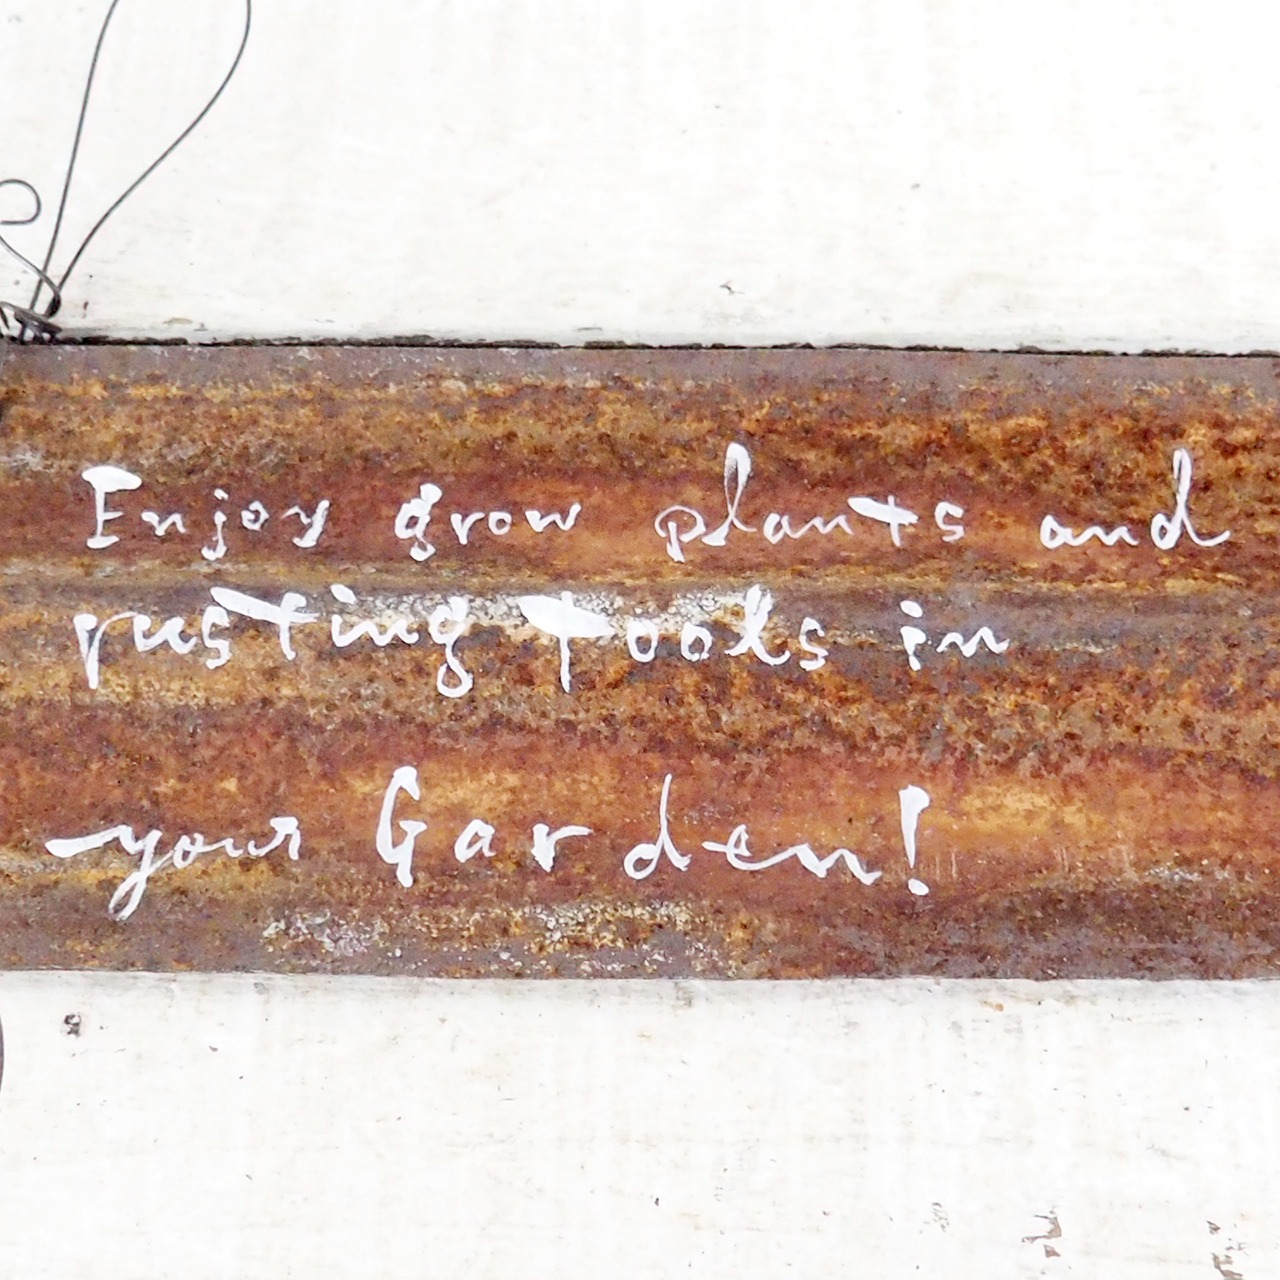 Enjoy grow plants and
rusting tools in
your Garden!